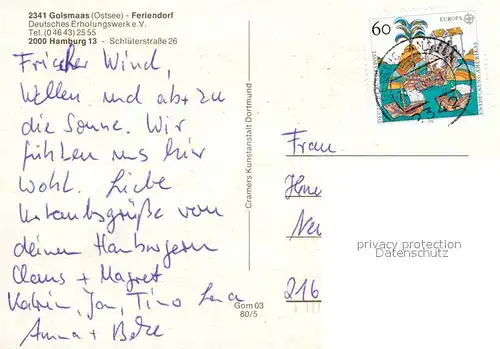 2341 Golsmaas (Ostsee) - Feriendorf
Deutsches Erholungswerk e.V.
Tel. (0 46 43) 25 55
2000 Hamburg 13 - Schlüterstraße 26
Frischer Wind,
Wellen und ab + zu
die Sonne. Wir
fühlen uns hier
wohl. Liebe
Urlaubsgrüße von
deinen Hamburgern
Claus + Magret
Katrin, Jan, Tino Lena
Anna +
Cramers Kunstanstalt Dortmund
Gom 03
80/5
60
EUROPA
Frau
216
privacy protection
Datenschutz